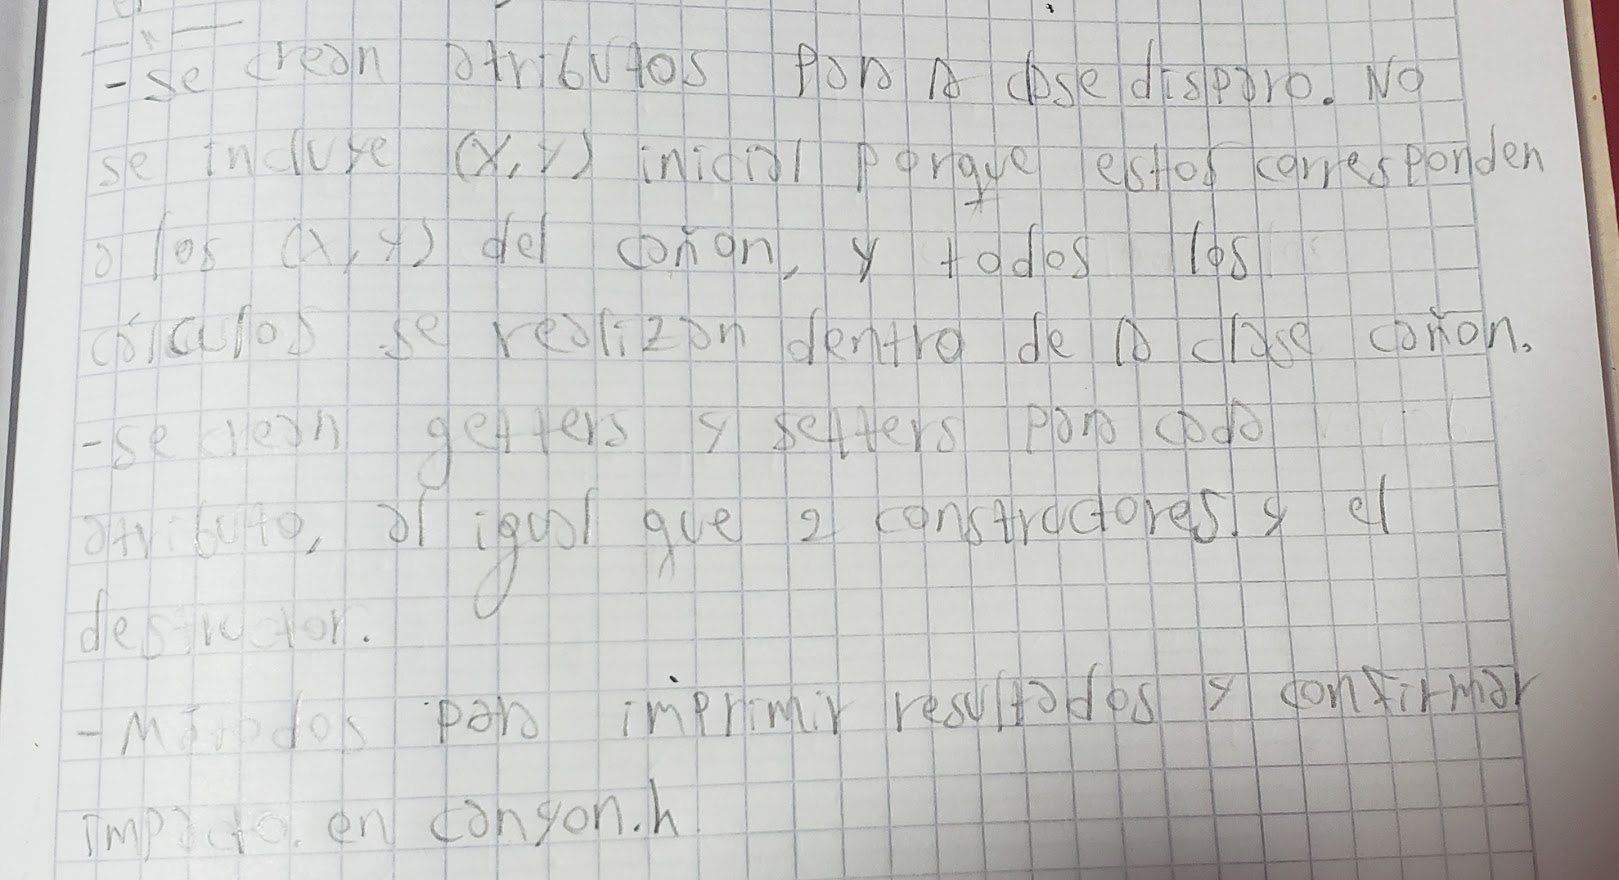 - se crean atributos para la clase disparo. No
se incluye (x,y) inicial porque estos corresponden
a los (x,y) del cañon, y todos los
cálculos se realizan dentro de la clase cañon.
- se crean getters y setters para cada
atributo, al igual que 2 constructores y el
destructor.
- Métodos para imprimir resultados y confirmar
impacto en canyon.h